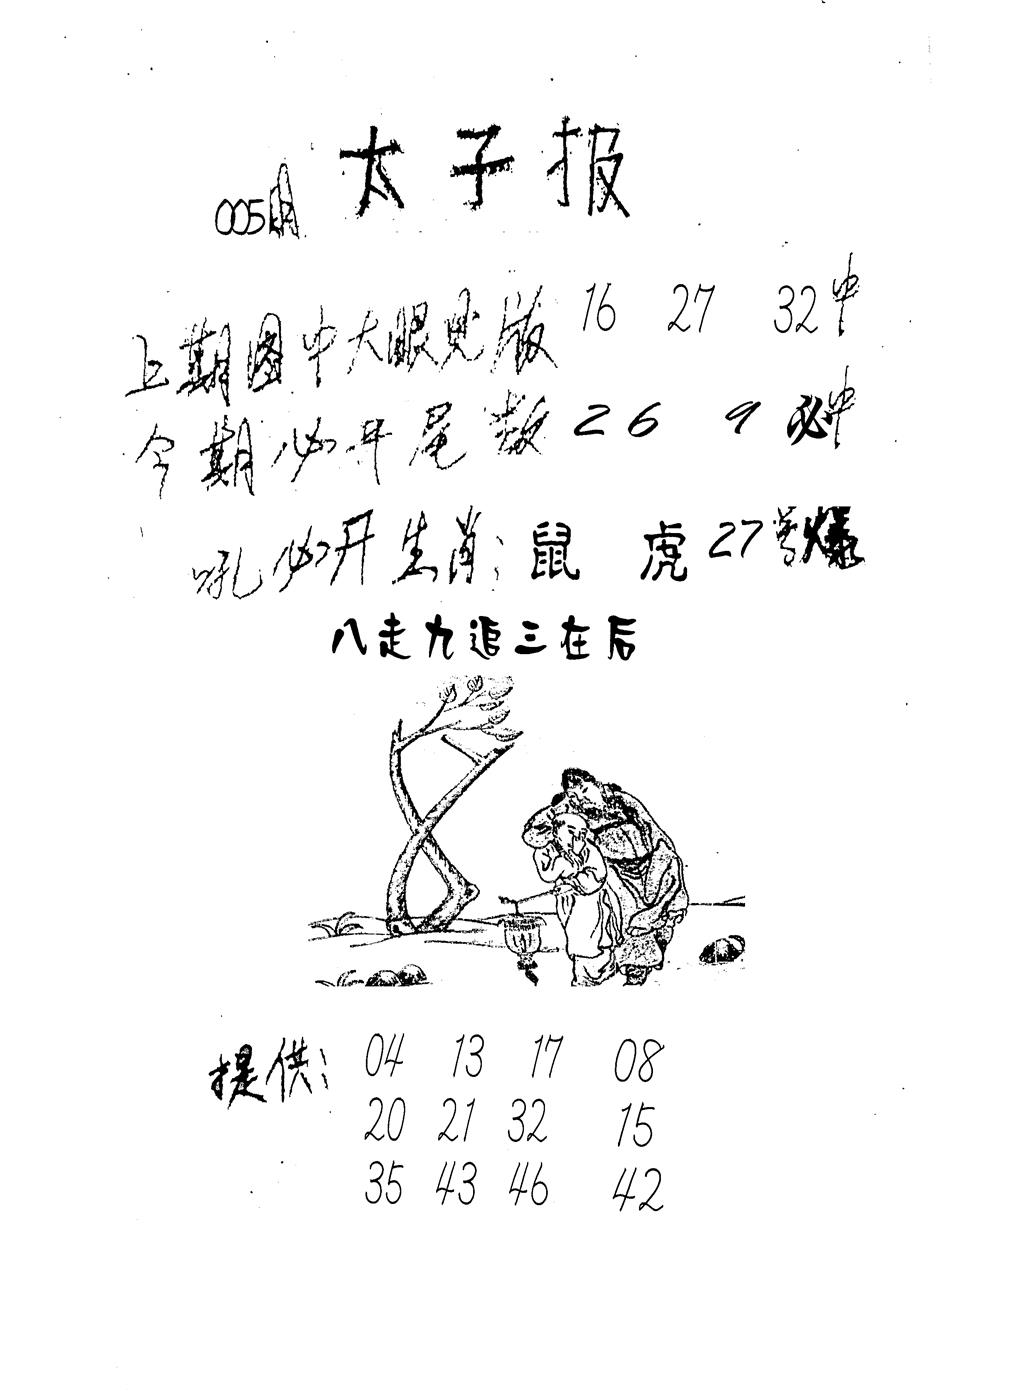 太子报
005期
上期图中大眼见版 16 27 32中
今期必开尾数 2 6 9 必中
吼必开生肖: 鼠 虎 27号爆
八走九追三在后
提供: 04 13 17 08
20 21 32 15
35 43 46 42